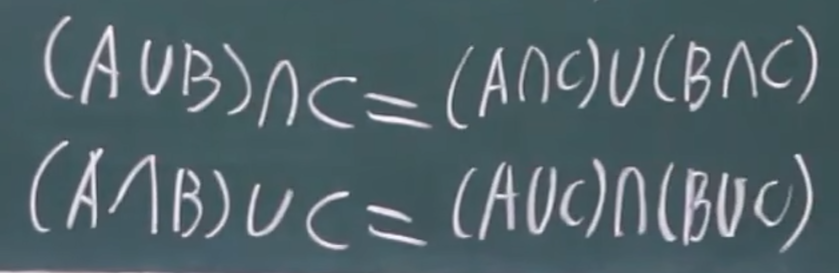 (A∪B)∩C=(A∩C)∪(B∩C)
(A∩B)∪C=(A∪C)∩(B∪C)